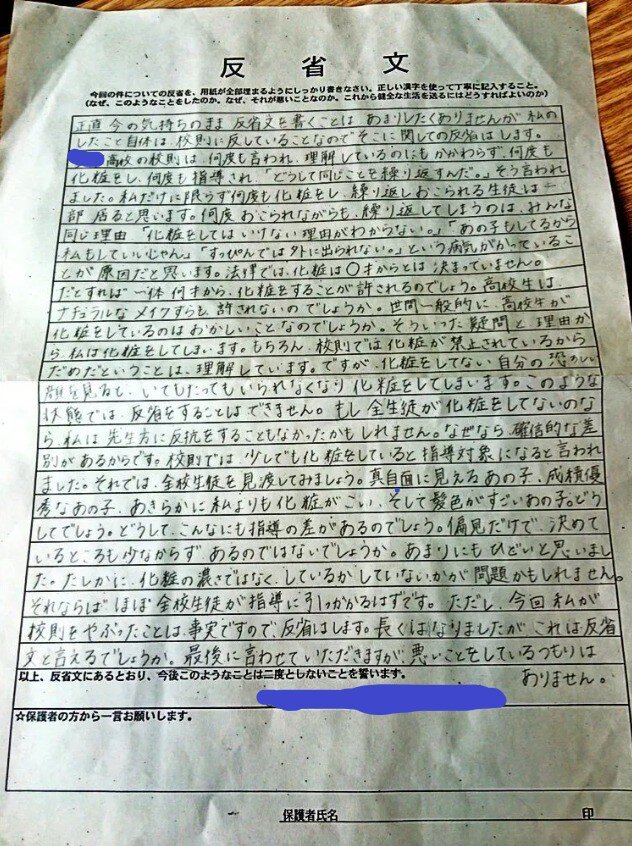 反省文
今回の件についての反省を、用紙が全部埋まるようにしっかり書きなさい。正しい漢字を使って丁寧に記入すること。
(なぜ、このようなことをしたのか。なぜ、それが悪いことなのか。これから健全な生活を送るにはどうすればよいのか)
正直 今の気持ちのまま 反省文を書くことは あまりしたくありませんが、私の
したこと自体は、校則に反していることなのでそこに関しての反省はします。
高校の校則は、何度も言われ、理解しているのにもかかわらず、何度も
化粧をし、何度も指導され、「どうして同じことを繰り返すんだ。」そう言われ
ました。私だけに限らず何度も化粧をし、繰り返しおこられる生徒は一
部 居ると思います。何度おこられながらも、繰り返してしまうのは、みんな
同じ理由「化粧をしてはいけない理由がわからない。」「あの子もしてるから
私もしていいじゃん。」「すっぴんでは外に出られない。」という病気がかっているこ
とが原因だと思います。法律では、化粧は〇才からとは決まっていません。
だとすれば一体何才から、化粧をすることが許されるのでしょう。高校生は、
ナチュラルなメイクすらも、許されないのでしょうか。世間一般的に、高校生が
化粧をしているのはおかしいことなのでしょうか。そういった疑問と理由か
ら私は化粧をしてしまいます。もちろん、校則では化粧が禁止されているから
だめだということは、理解しています。ですが、化粧をしてない自分の恐ろしい
顔を見ると、いてもたってもいられなくなり化粧をしてしまいます。このような
状態では、反省をすることはできません。もし全生徒が化粧をしてないのな
ら、私は先生方に反抗をすることもなかったかもしれません。なぜなら、確信的な差
別があるからです。校則では、少しでも化粧をしていると指導対象になると言われ
ました。それでは、全校生徒を見渡してみましょう。真自面に見えるあの子、成積優
秀なあの子、あきらかに私よりも化粧がこい、そして髪色がすごいあの子。どう
してでしょう。どうして、こんなにも指導の差があるのでしょう。偏見だけで、決めて
いるところも少なからずあるのではないでしょうか。あまりにもひどいと思いまし
た。たしかに、化粧の濃さではなく、しているかしていないかが問題かもしれません。
それならばほぼ全校生徒が指導に引っかかるはずです。ただし、今回私が
校則をやぶったことは、事実ですので、反省はします。長くはなりましたが、これは反省
文と言えるでしょうか。最後に言わせていただきますが悪いことをしているつもりは
ありません。
以上、反省文にあるとおり、今後このようなことは二度としないことを誓います。
☆保護者の方から一言お願いします。
保護者氏名 印